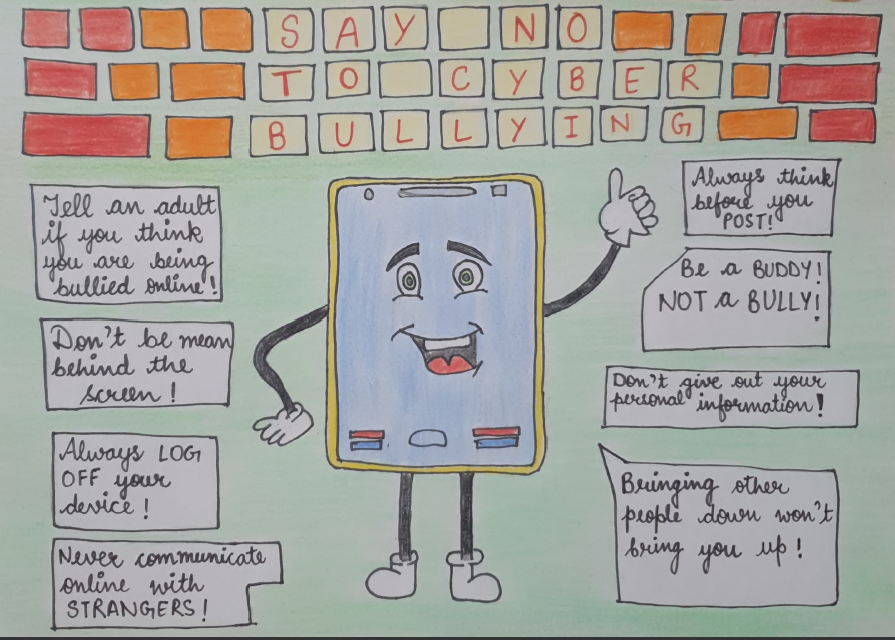 SAY NO
TO CYBER
BULLYING
Tell an adult
if you think
you are being
bullied online!
Don't be mean
behind the
screen!
Always LOG
OFF your
device!
Never communicate
online with
STRANGERS!
Always think
before you
POST!
Be a BUDDY!
NOT a BULLY!
Don't give out your
personal information!
Bringing other
people down won't
bring you up!